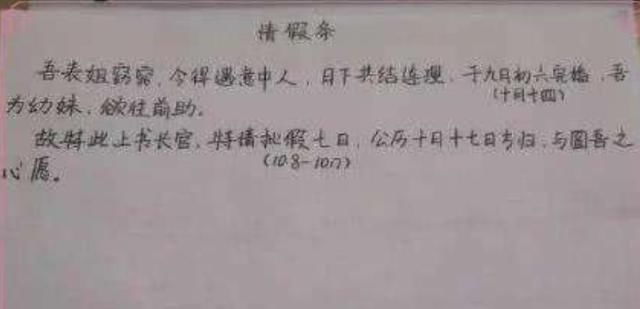 请假条
吾表姐窈窕，今得遇意中人，日下共结连理，于九月初六完婚，吾
(十月十四)
为幼妹，欲往前助。
故特此上书长官，特请批假七日，公历十月十七日方归，与圆吾之
(10.8-10.17)
心愿。